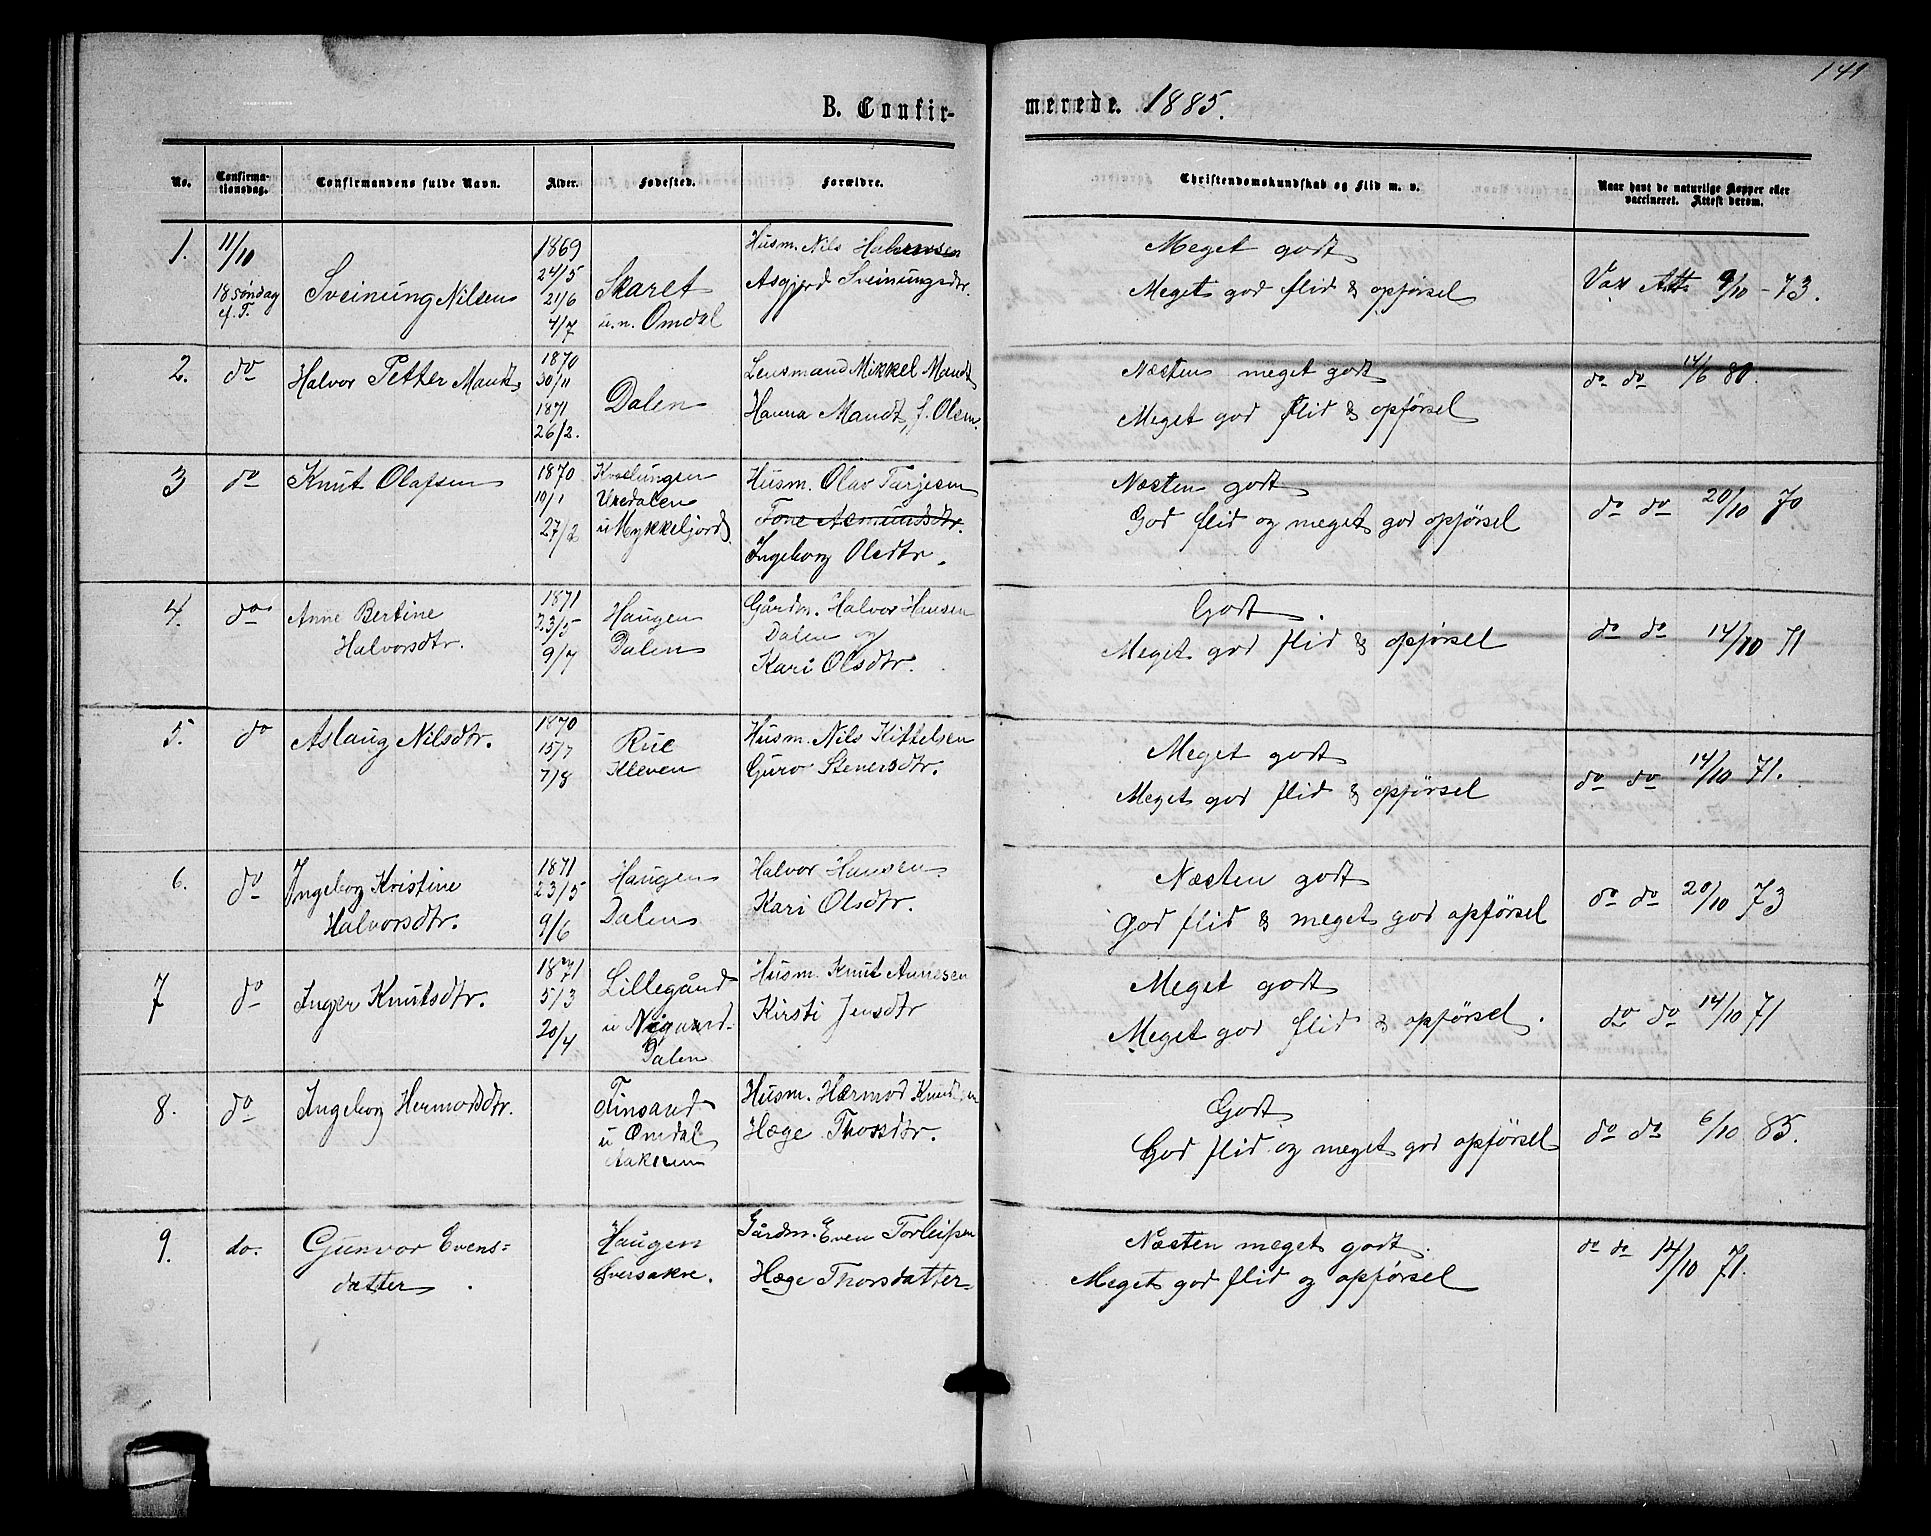 149
B. Confir-
merede. 1885.
No.
Confirma-
tionsdag.
Confirmandens fulde Navn.
Alder.
Fødested.
Forældre.
Christendomskundskab og Flid m. v.
Naar havt de naturlige Kopper eller
vaccineret. Attest derom.
1.
11/10
18 søndag
e. T.
Sveinung Nilsen
1869
24/5
21/6
4/7
Skaret
u. n. Omdal
Husm. Nils Halvorsen
Asgjerd Sveinungsdtr.
Meget godt
Meget god flid & opførsel
Vax Att. 9/10 - 73.
2.
do
Halvor Petter Mandt
1870
30/11
1871
26/2.
Dalen
Lensmand Mikkel Mandt
Hanna Mandt, f. Olsen.
Næsten meget godt
Meget god flid & opførsel
do do 14/6 80.
3
do
Knut Olafsen
1870
10/1
27/2
Uredalen
u Mykkeljord
Husm. Olav Tarjesen
Tone Asmundsdtr.
Ingeborg Olsdtr.
Næsten godt
God flid og meget god opførsel
do do 20/10 70
4.
do
Anne Bertine
Halvorsdtr.
1871
23/5
9/7
Haugen
Dalen
Gårdm. Halvor Hansen
Dalen og
Kari Olsdtr.
Godt.
Meget god flid & opførsel
do do 14/10 71
5.
do
Aslaug Nilsdtr.
1870
15/7
7/8
Rue
Kleven
Husm. Nils Kittelsen
Guro Stenersdtr.
Meget godt
Meget god flid & opførsel
do do 14/10 71.
6.
do
Ingeborg Kristine
Halvorsdtr.
1871
23/5
9/6
Haugen
Dalen
Halvor Hansen
Kari Olsdtr.
Næsten godt
God flid & meget god opførsel
do do 20/10 73
7
do
Inger Knutsdtr.
1871
5/3
20/4
Lillegård
u Nigaard-
Dalen
Husm. Knut Aanesen
Kirsti Jensdtr
Meget godt
Meget god flid & opførsel.
do do 14/10 71
8.
do
Ingeborg Hermodsdtr.
Finsand
u Omdal
Husm. Hærmod Knudsen
Hæge Thorsdtr.
Godt
God flid og meget god opførsel
do do 6/10 85.
9.
do.
Gunvor Evens-
datter.
Haugen
Øversakre.
Gårdm. Even Torleifsen
Hæge Thorsdatter
Næsten meget godt.
Meget god flid og opførsel
do do 14/10 71.